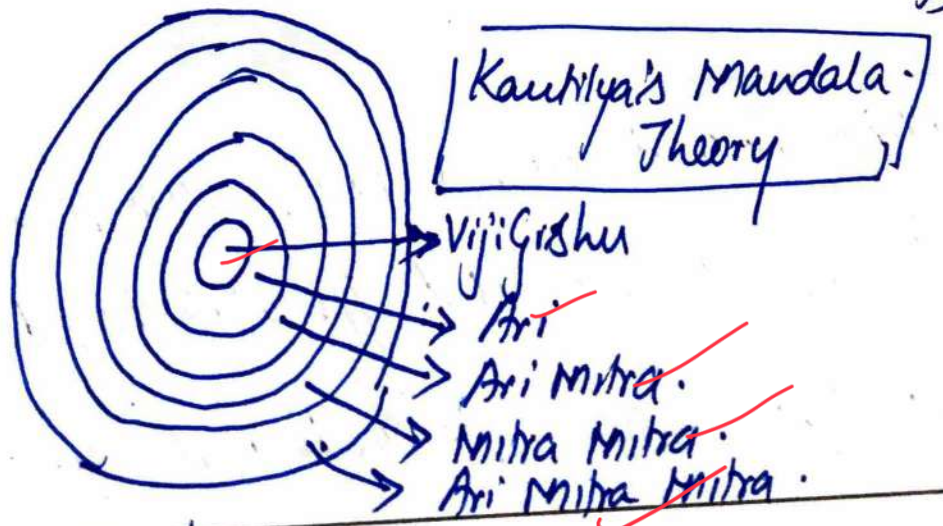 Kautilya's Mandala.
Theory
Vijigishu
Ari
Ari Mitra.
Mitra Mitra.
Ari Mitra Mitra.